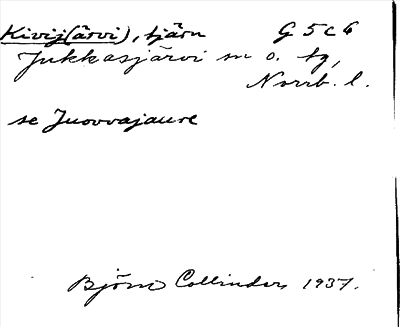 Kivij(ärvi), tjärn G5c6
Jukkasjärvi sn o. tg,
Norrb. l.
se Juovvajaure
Björn Collinder 1937.